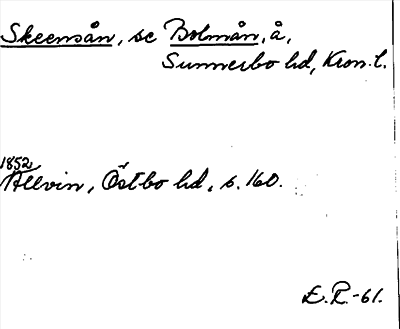 Skeensån, se Bolmån, å,
Sunnerbo hd, Kron. l.
1852
Allvin, Östbo hd, s. 160.
E.R.-61.